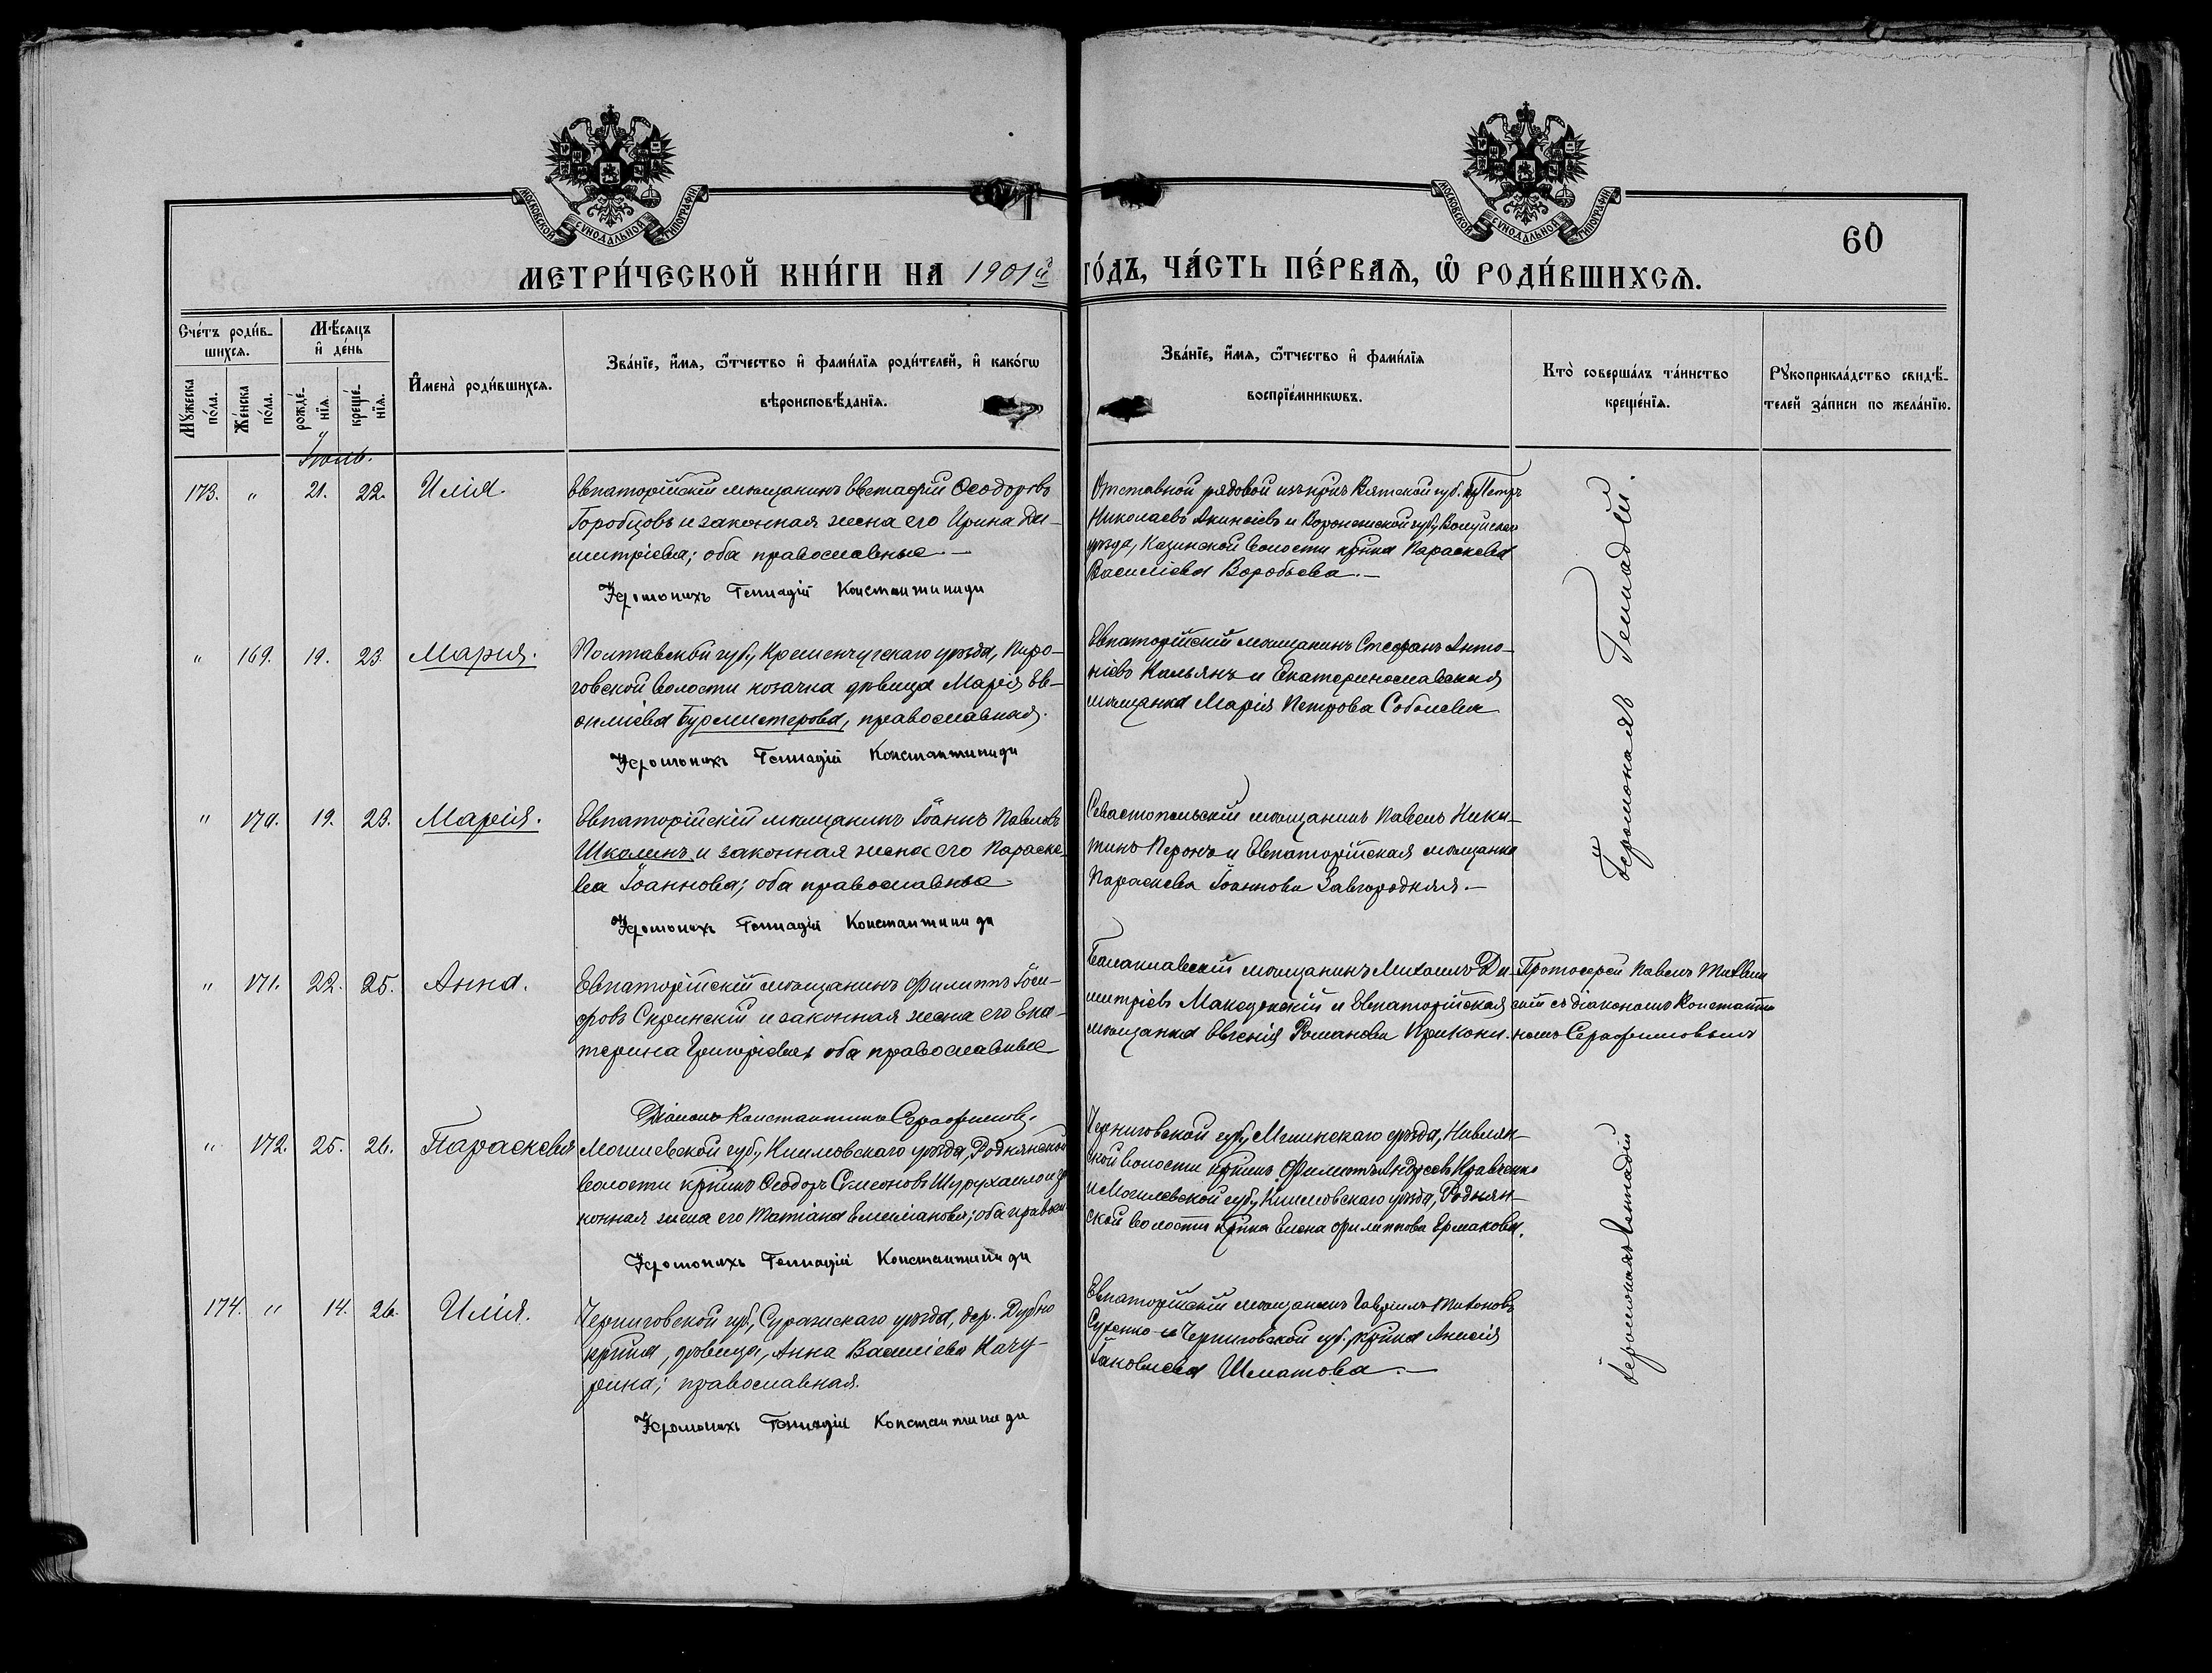 МОСКОВСКОЙ СУНОДАЛЬНОЙ ТИПОГРАФІИ
МОСКОВСКОЙ СУНОДАЛЬНОЙ ТИПОГРАФІИ
60
МЕТРИ́ЧЕСКОЙ КНИ́ГИ НА 1901й ГО́ДЪ, ЧА́СТЬ ПЕ́РВАѦ, Ѡ҆ РОДИ́ВШИХСѦ.
Сче́тъ роди́в-
шихсѧ.
Мꙋ́жеска по́ла.
Же́нска по́ла.
Мѣ́сяцъ
и҆ де́нь
рожде́-
нїѧ.
креще́-
нїѧ.
И҆мена̀ роди́вшихсѧ.
Зва́нїе, и҆́мѧ, ѻ҆́тчество и҆ фами́лїѧ роди́телей, и҆ како́гѡ
вѣроисповѣ́данїѧ.
Зва́нїе, и҆́мѧ, ѻ҆́тчество и҆ фами́лїѧ
воспрїе́мникѡвъ.
Кто̀ соверша́лъ та́инство
креще́нїѧ.
Рꙋкоприкла́дство свидѣ́-
телей за́писи по жела́нїю.
Іюль.
173. " 21. 22. Илія.
Евпаторійскій мѣщанинъ Евстафій Ѳеодоровъ
Горобцовъ и законная жена его Ирина Ди-
митріева; оба православные.—
Іеромонахъ Геннадій Константиниди
Отставной рядовой изъ крнъ Вятской губ. Петръ
Николаевъ Акинѳіевъ и Воронежской губ, Валуйскаго
уѣзда, Казинской волости крнка Параскева
Василіева Воробьева.—
Іеромонахъ Геннадій.
" 169. 19. 23. Марія.
Полтавской губ, Кременчугскаго уѣзда, Пиро-
говской волости козачка дѣвица Марія Ев-
Бурмистерова, православная.
Іеромонахъ Геннадій Константиниди
Евпаторійскій мѣщанинъ Стефанъ Анто-
ніевъ Кальянъ и Екатеринославская
мѣщанка Марія Петрова Соболева
" 170. 19. 23. Марія.
Евпаторійскій мѣщанинъ Іоаннъ Павловъ
Школинъ и законная жена его Параске-
ва Іоаннова; оба православные
Іеромонахъ Геннадій Константиниди
Севастопольскій мѣщанинъ Павелъ Ники-
тинъ Перонъ и Евпаторійская мѣщанка
Параскева Іоаннова Завгородняя.—
" 171. 22. 25. Анна.
Евпаторійскій мѣщанинъ Филиппъ Іоси-
фовъ Скринскій и законная жена его Ека-
терина Григоріева; оба православные
Діаконъ Константинъ Серафимовъ
Балаклавскій мѣщанинъ Михаилъ Ди-
митріевъ Македонскій и Евпаторійская
мѣщанка Евгенія Романова Прикони.
Протоіерей Павелъ
съ діакономъ Константи-
номъ Серафимовымъ
" 172. 25. 26. Параскевія
Могилевской губ, Климовскаго уѣзда, Роднянской
волости крнинъ Ѳеодоръ Симеоновъ
конная жена его Татіана Емеліанова; оба правосл.
Іеромонахъ Геннадій Константиниди
Черниговской губ, Мглинскаго уѣзда, Нивлян-
ской волости крнинъ Филиппъ Андреевъ Кравченко
и Могилевской губ, Климовскаго уѣзда, Роднян-
ской волости крнка Елена Филиппова Ермакова.
Іеромонахъ Геннадій
174. " 14. 26. Илія.
Черниговской губ, Суражскаго уѣзда, дер. Дубно
крнка, дѣвица, Анна Василіева Качу-
рина; православная.
Іеромонахъ Геннадій Константиниди
Евпаторійскій мѣщанинъ Гавріилъ Тихоновъ
Суренко и Черниговской губ, крнка Анисія
Іаковлева Шматова.—